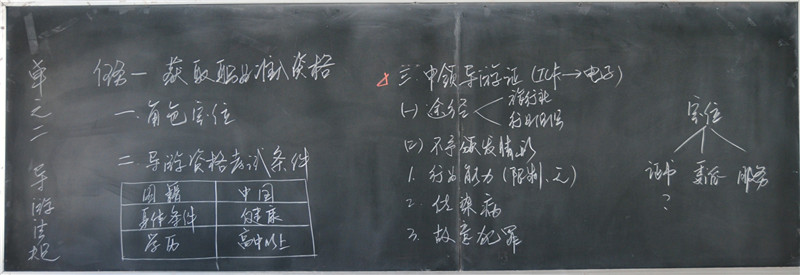 单元二 导游法规
任务一 获取职业准入资格
一、角色定位
二、导游资格考试条件
国籍 中国
身体条件 健康
学历 高中以上
三、申领导游证（IC卡→电子）
(一) 途径
旅行社
行业组织
(二) 不予颁发情形
1. 行为能力（限制、无）
2. 传染病
3. 故意犯罪
定位
证书 委派 服务
?